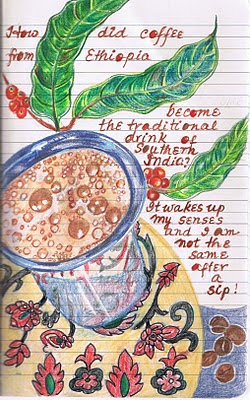 How did coffee
from Ethiopia
become
the traditional
drink of
Southern
India?
It wakes up
my senses
and I am
not the
same
after
a
sip!